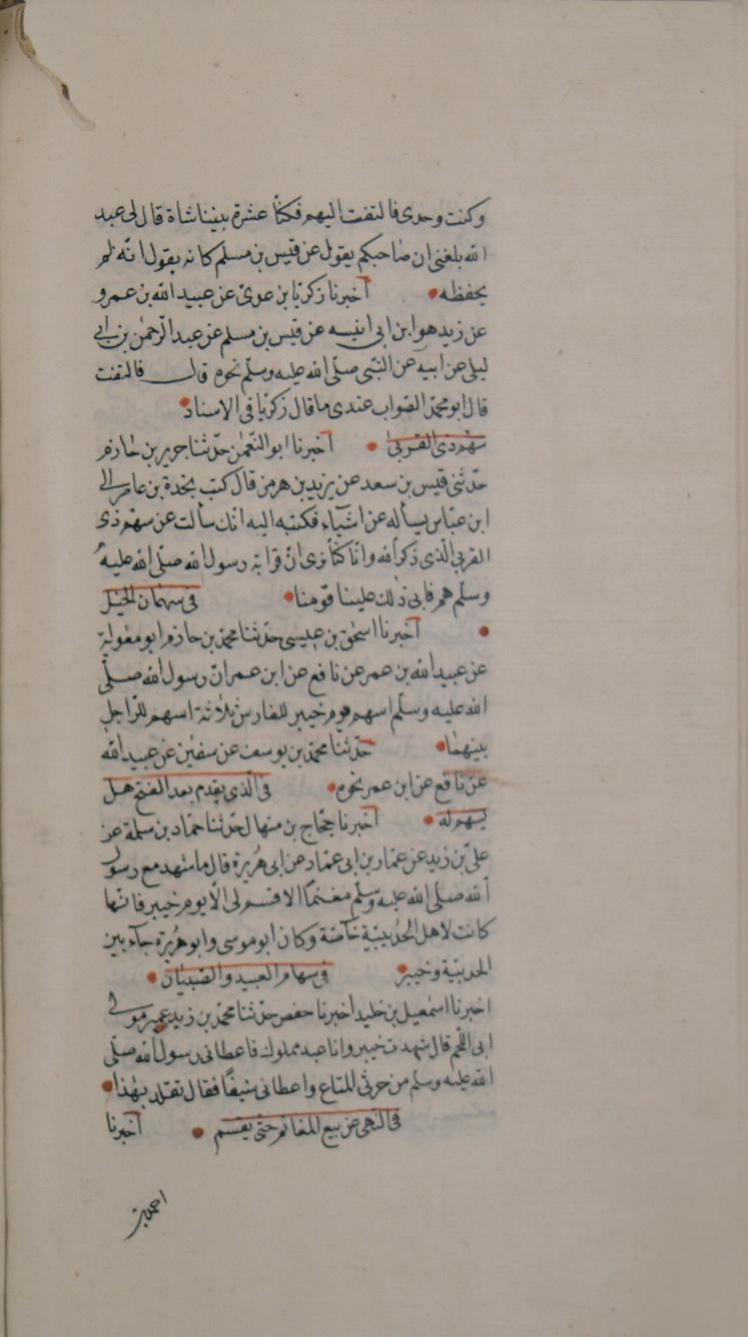 وكنت وحدى فالتفت اليهم فكنا عشرة بيننا شاة قال لى عبد
الله بلغنى ان صاحبكم يقول عن قيس بن مسلم كانه يقول انه لم
يحفظه • أخبرنا زكريا بن عدى عن عبيد الله بن عمرو
عن زيد هو ابن ابى انيسه عن قيس بن مسلم عن عبد الرحمن بن ابى
ليلى عن ابيه عن النبى صلى الله عليه وسلم نحوه قال فالتفت
قال ابو محمد الصواب عندى ما قال زكريا فى الاسناد •
سهم ذى القربى • أخبرنا ابو النعمن حدثنا جرير بن حازم
حدثنى قيس بن سعد عن يزيد بن هرمز قال كتب نجدة بن عامر الى
ابن عباس يسأله عن اشياء فكتب اليه انك سألت عن سهم ذى
القربى الذى ذكر الله وانا كنا نرى ان قرابة رسول الله صلى الله عليه
وسلم هم فابى ذلك علينا قومنا • فى سهمان الخيل
• أخبرنا اسحق بن عيسى حدثنا محمد بن حازم ابو معوية
عن عبيد الله بن عمر عن نافع عن ابن عمر ان رسول الله صلى
الله عليه وسلم اسهم يوم خيبر للفارس ثلاثة اسهم للراجل
بينهما • حدثنا محمد بن يوسف عن سفين عن عبيد الله
عن نافع عن ابن عمر نحوه • فى الذى يقدم بعد الفتح هل
يسهم له • أخبرنا حجاج بن منهال حدثنا حماد بن سلمة عن
على بن زيد عن عمار بن ابى عمار عن ابى هريرة قال ما شهد مع رسول
الله صلى الله عليه وسلم مغنما الا قسم لى الا يوم خيبر فانها
كانت لاهل الحديبية خاصة وكان ابو موسى وابو هريرة جاء بين
الحديبية وخيبر • فى سهام العبيد والصبيان •
اخبرنا اسمعيل بن خليد اخبرنا حفص حدثنا محمد بن زيد عمير مولى
ابى اللحم قال شهدت خيبر وانا عبد مملوك فاعطانى رسول الله صلى
الله عليه وسلم من خرثى المتاع واعطانى سيفا فقال تقلد بهذا •
فى النهى عن بيع المغانم حتى يقسم • أخبرنا
احمد بن